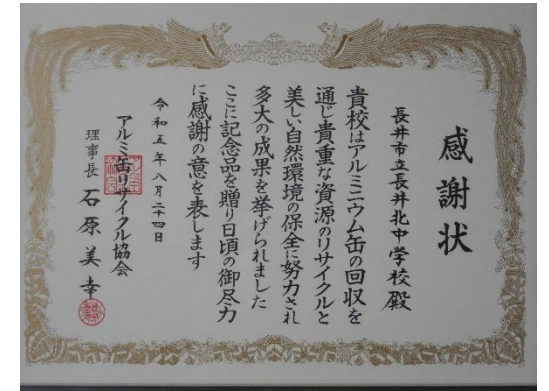 感謝状
長井市立長井北中学校殿
貴校はアルミニウム缶の回収を
通じ貴重な資源のリサイクルと
美しい自然環境の保全に努力され
多大の成果を挙げられました
ここに記念品を贈り日頃の御尽力
に感謝の意を表します
令和五年八月二十四日
アルミ缶リサイクル協会
理事長 石原美幸